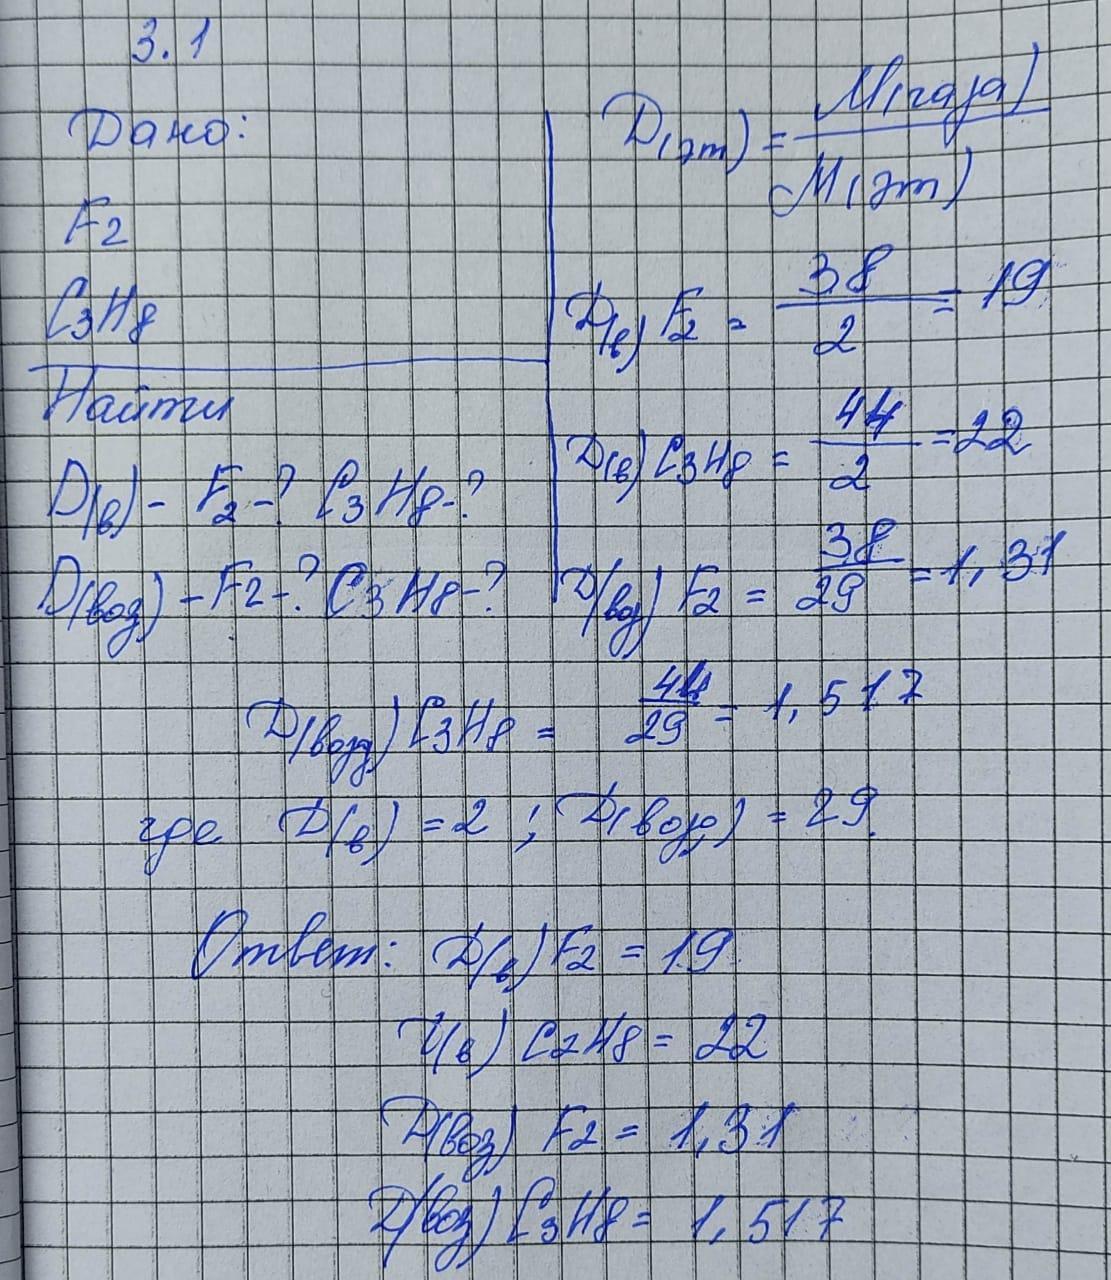 3.1
Дано:
F2
C3H8
Найти
D(в) - F2 -? C3H8-?
D(воз) - F2-? C3H8-?
D(эт) = M(газа) / M(эт)
D(в) F2 = 38/2 = 19
D(в) C3H8 = 44/2 = 22
D(воз) F2 = 38/29 = 1,31
D(возд) C3H8 = 44/29 = 1,517
где D(в) = 2 ; D(возд) = 29
Ответ: D(в) F2 = 19
D(в) C2H8 = 22
D(воз) F2 = 1,31
D(воз) C3H8 = 1,517